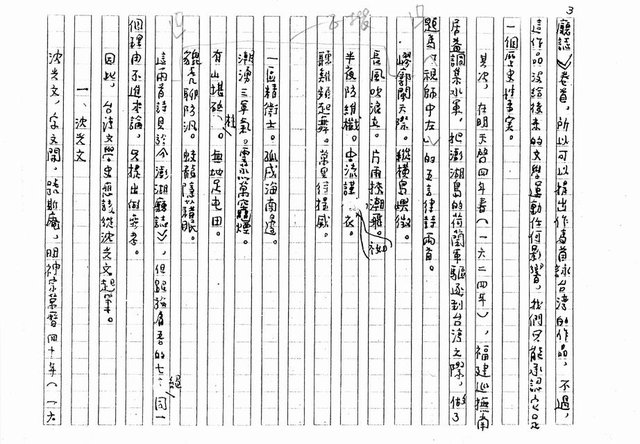 3
廳誌》卷首，所以可以提出作者首詠台灣的作品，不過，
這作品沒給後來的文學運動任何影響，我們只能承認它是
一個歷史性事実。
其次，在明天啓四年春（一六二四年），福建巡撫南
居益調集水軍，把澎湖島的荷蘭軍驅逐到台湾之際，做了
題為《視師中左》的五言律詩兩首。
寥廓闊天際。縱橫島嶼微。
長風吹浪立。片雨挾潮飛。
半夜防維檝。中流謹 衣。袽
聽雞頻起舞。萬里待揚威。
一區精衛士。孤戍海南邊。
潮湧三軍氣。雲蒸萬竈煙。
有山堪砥柱、。無地足屯田。
貔虎聊防汛。蛟龍隱藉眠。
這兩首詩見於今《澎湖廳誌》，但跟施肩吾的七絕，同一
個理由不進來論，只提出做參考。
因此，台湾文學史應該從沈光文起筆。
一、沈光文
沈光文，字文開，號斯庵，明神宗萬曆四十年（一六